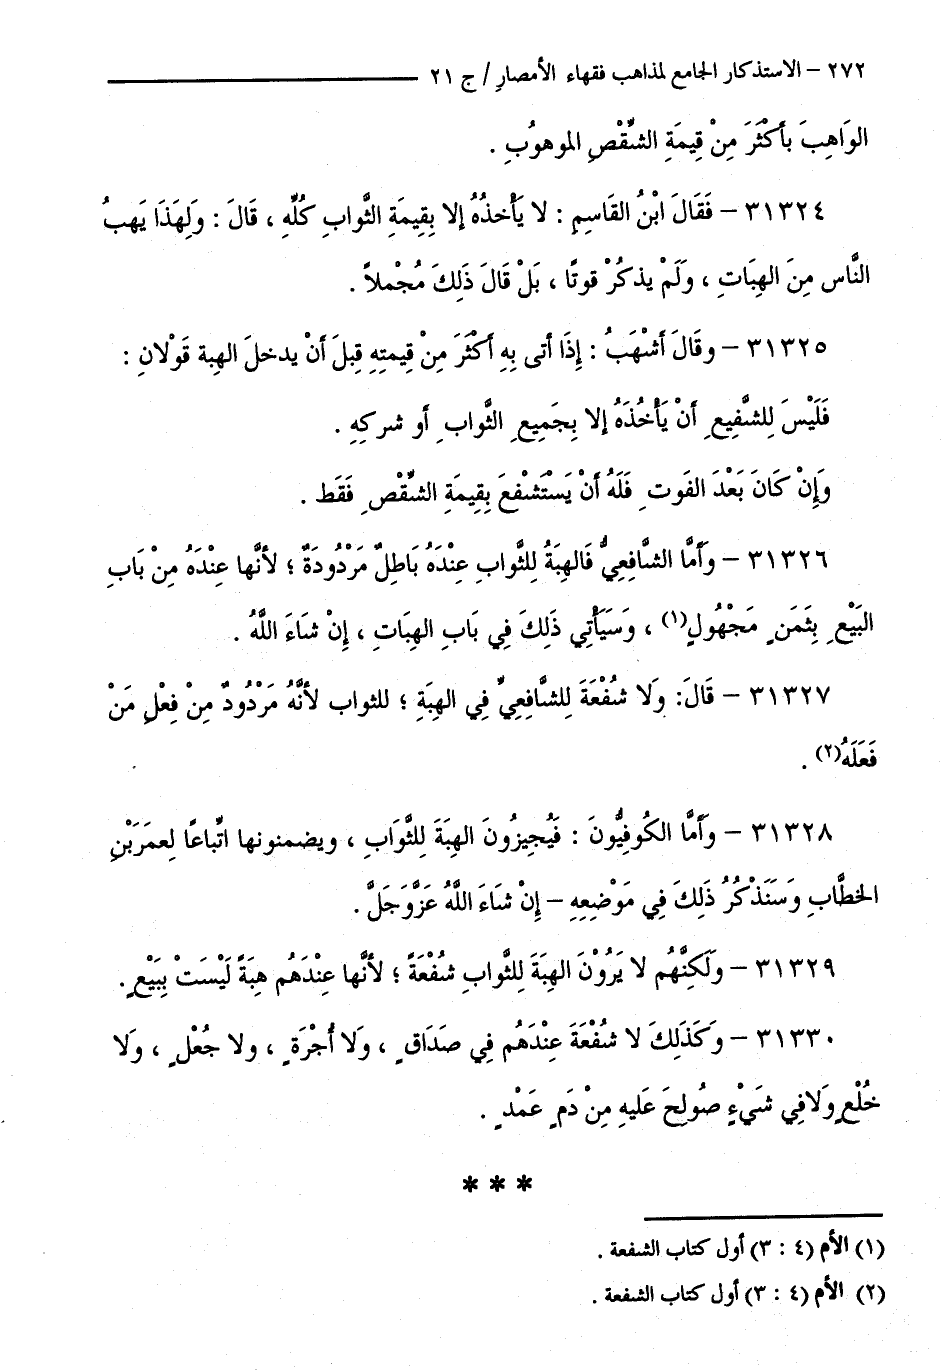 ٢٧٢ – الاستذكار الجامع لمذاهب فقهاء الأمصارِ / ج ٢١
الوَاهِبَ بأكْثَرَ مِنْ قِيمَةِ الشِّقْصِ الموهوُبِ .
٣١٣٢٤ – فَقَالَ ابْنُ القَاسِمِ : لا يَأْخذُهُ إلا بِقِيمَةِ الثَّوابِ كُلِّهِ ، قَالَ : وَلِهَذَا يَهبُ
النَّاس مِنَ الهِبَاتِ ، وَلَمْ يذكُرْ قوتًا ، بَلْ قَالَ ذَلِكَ مُجْملاً .
٣١٣٢٥ – وقَالَ أشْهَبُ : إِذَا أتى بِهِ أكْثَرَ مِنْ قِيمتِهِ قِبلَ أنْ يدخلَ الهِبة قَوْلانِ :
فَلَيْسَ لِلشَّفِيعِ أنْ يَأْخُذَهُ إلا بِجَمِيعِ الثَّوابِ أو شركِهِ .
وَإِنْ كَانَ بَعْدَ الفَوتِ فَلَهُ أنْ يَسْتَشْفعَ بِقِيمَةِ الشِّقْصِ فَقَط .
٣١٣٢٦ – وَأمَّا الشَّافِعِيُّ فَالهِبَةُ لِلثَّوابِ عِنْدَهُ بَاطِلٌ مَرْدُودَةٌ ؛ لأنَّها عِنْدَهُ مِنْ بَابِ
البَيْعِ بِثَمَنٍ مَجْهُولٍ(١) ، وَسَيَأْتِي ذَلِكَ فِي بَابِ الهِبَاتِ ، إِنْ شَاءَ اللَّهُ .
٣١٣٢٧ – قَالَ: وَلا شُفْعَةَ لِلشَّافِعِيِّ فِي الهِبَةِ ؛ للثواب لأنَّهُ مَرْدُودٌ مِنْ فِعْلِ مَنْ
فَعَلَهُ(٢) .
٣١٣٢٨ – وَأمَّا الكُوفِيُّونَ : فَيُجِيزُونَ الهِبَةَ لِلثَّوَابِ ، ويضمنونها اتِّباعًا لِعمَرَ بْنِ
الخطَّابِ وَسَنَذْكُرُ ذَلِكَ فِي مَوْضِعِهِ – إِنْ شَاءَ اللَّهُ عَزَّوَجَلَّ .
٣١٣٢٩ – وَلَكِنَّهُم لا يَرَوْنَ الهِبَةَ لِلثَّوابِ شُفْعَةً ؛ لأنَّها عِنْدَهُم هِبَةً لَيْسَتْ بِبَيْعٍ .
٣١٣٣٠ – وَكَذَلِكَ لا شُفْعَةَ عِنْدَهُم فِي صَدَاقٍ ، وَلا أُجْرَةٍ ، ولا جُعْلٍ ، وَلا
خُلْعٍ وَلافِي شَيْءٍ صُولِحَ عَليهِ مِنْ دَمٍ عَمْدٍ .
* * *
(١) الأم (٤ : ٣) أول كتاب الشفعة .
(٢) الأم (٤ : ٣) أول كتاب الشفعة .